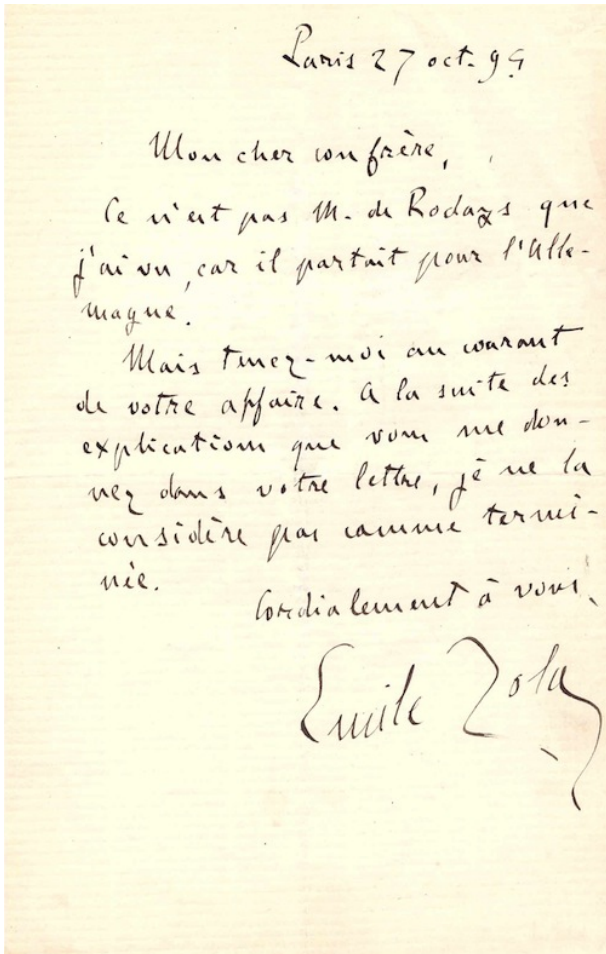 Paris 27 oct. 95
Mon cher confrère,
Ce n'est pas M. de Rodays que
j'ai vu, car il partait pour l'Alle-
magne.
Mais tenez-moi au courant
de votre affaire. A la suite des
explications que vous me don-
nez dans votre lettre, je ne la
considère pas comme termi-
née.
Cordialement à vous.
Emile Zola